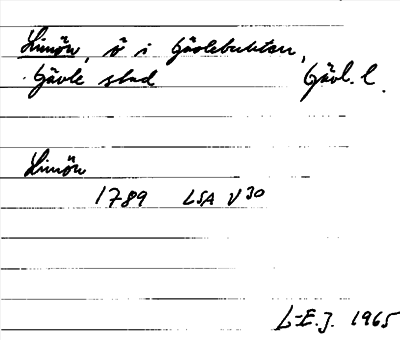 Limön, ö i Gävlebukten,
Gävle stad Gävl. l.
Limön
1789 LSA V 30
L-E.J. 1965